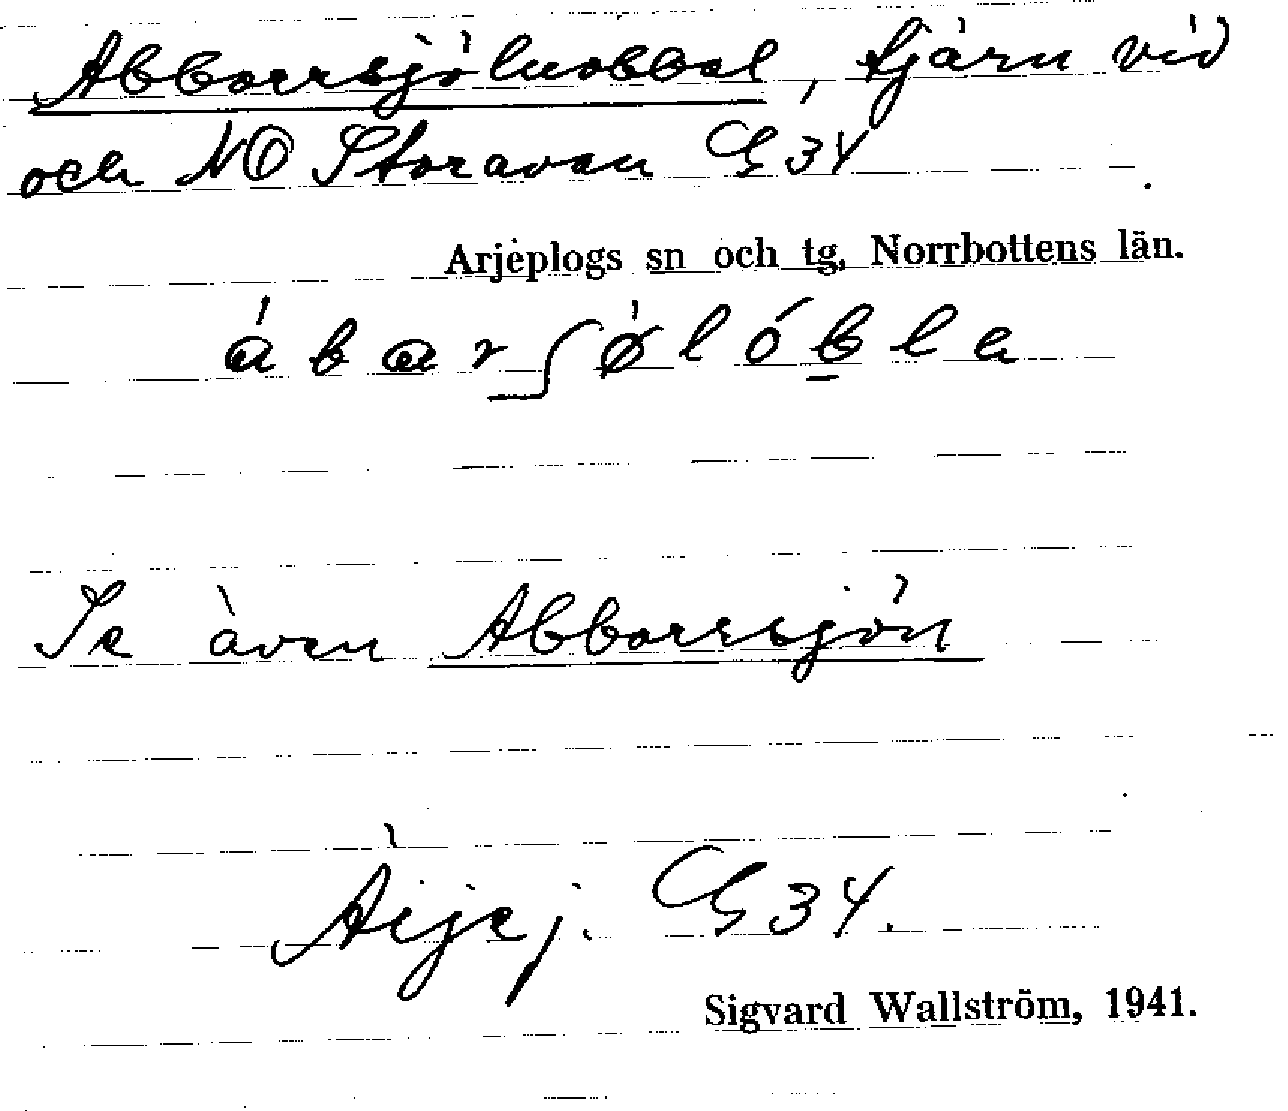 Abborrsjöluobbal, tjärn vid
och NO Storavan G 34
Arjeplogs sn och tg, Norrbottens län.
Se även Abborrsjön
G 34.
Sigvard Wallström, 1941.